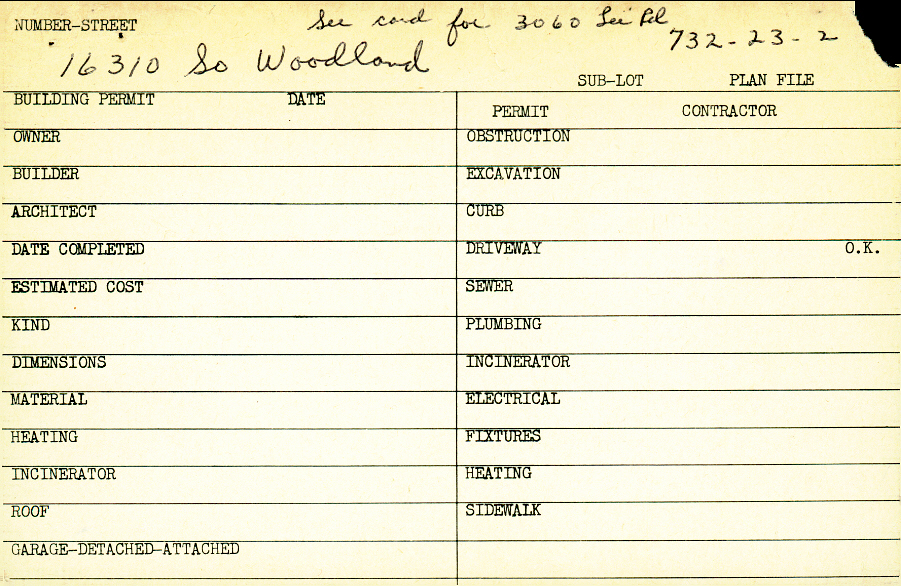 NUMBER-STREET See card for 3060 Lee Rd
732-23-2
16310 So Woodland
SUB-LOT PLAN FILE
BUILDING PERMIT DATE
PERMIT CONTRACTOR
OWNER OBSTRUCTION
BUILDER EXCAVATION
ARCHITECT CURB
DATE COMPLETED DRIVEWAY O.K.
ESTIMATED COST SEWER
KIND PLUMBING
DIMENSIONS INCINERATOR
MATERIAL ELECTRICAL
HEATING FIXTURES
INCINERATOR HEATING
ROOF SIDEWALK
GARAGE-DETACHED-ATTACHED